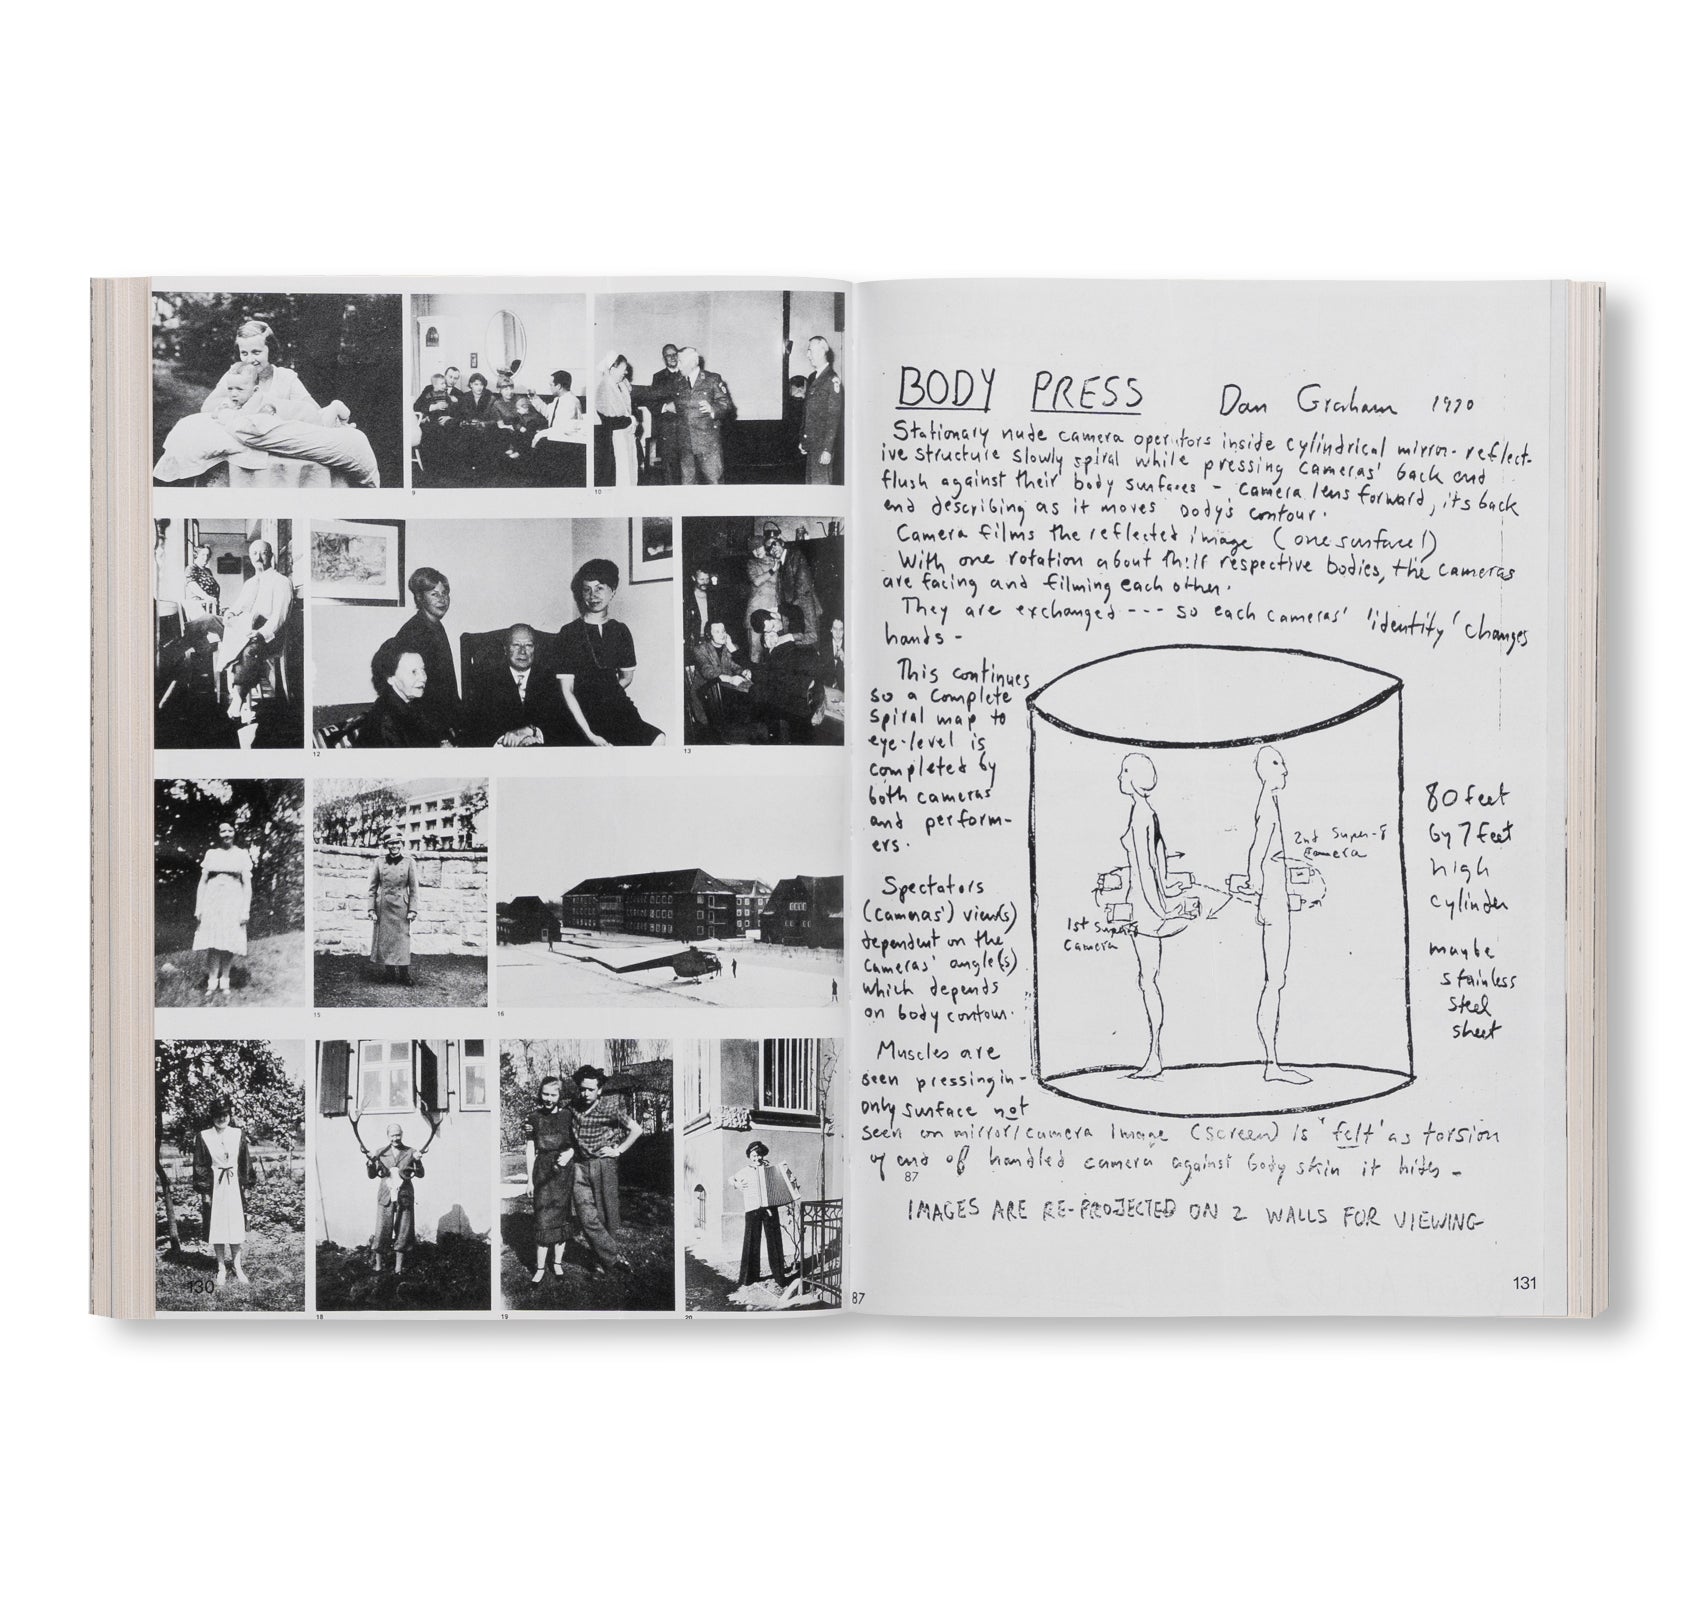 9
10
12
13
15
16
130
18
19
20
BODY PRESS Dan Graham 1970
Stationary nude camera operators inside cylindrical mirror-reflect-
ive structure slowly spiral while pressing cameras' back end
flush against their body surfaces - camera lens forward, its back
end describing as it moves body's contour.
Camera films the reflected image (one surface!)
With one rotation about their respective bodies, the cameras
are facing and filming each other.
They are exchanged --- so each cameras' 'identity' changes
hands -
This continues
so a complete
spiral map to
eye-level is
completed by
both cameras
and perform-
ers.
Spectators
(cameras') view(s)
dependent on the
cameras' angle(s)
which depends
on body contour.
Muscles are
seen pressing in-
only surface not
seen on mirror/camera image (screen) is 'felt' as torsion
of end of handled camera against body skin it hides -
87
IMAGES ARE RE-PROJECTED ON 2 WALLS FOR VIEWING
1st Super-8
Camera
2nd Super-8
Camera
80 feet
by 7 feet
high
cylinder
maybe
stainless
steel
sheet
87
131